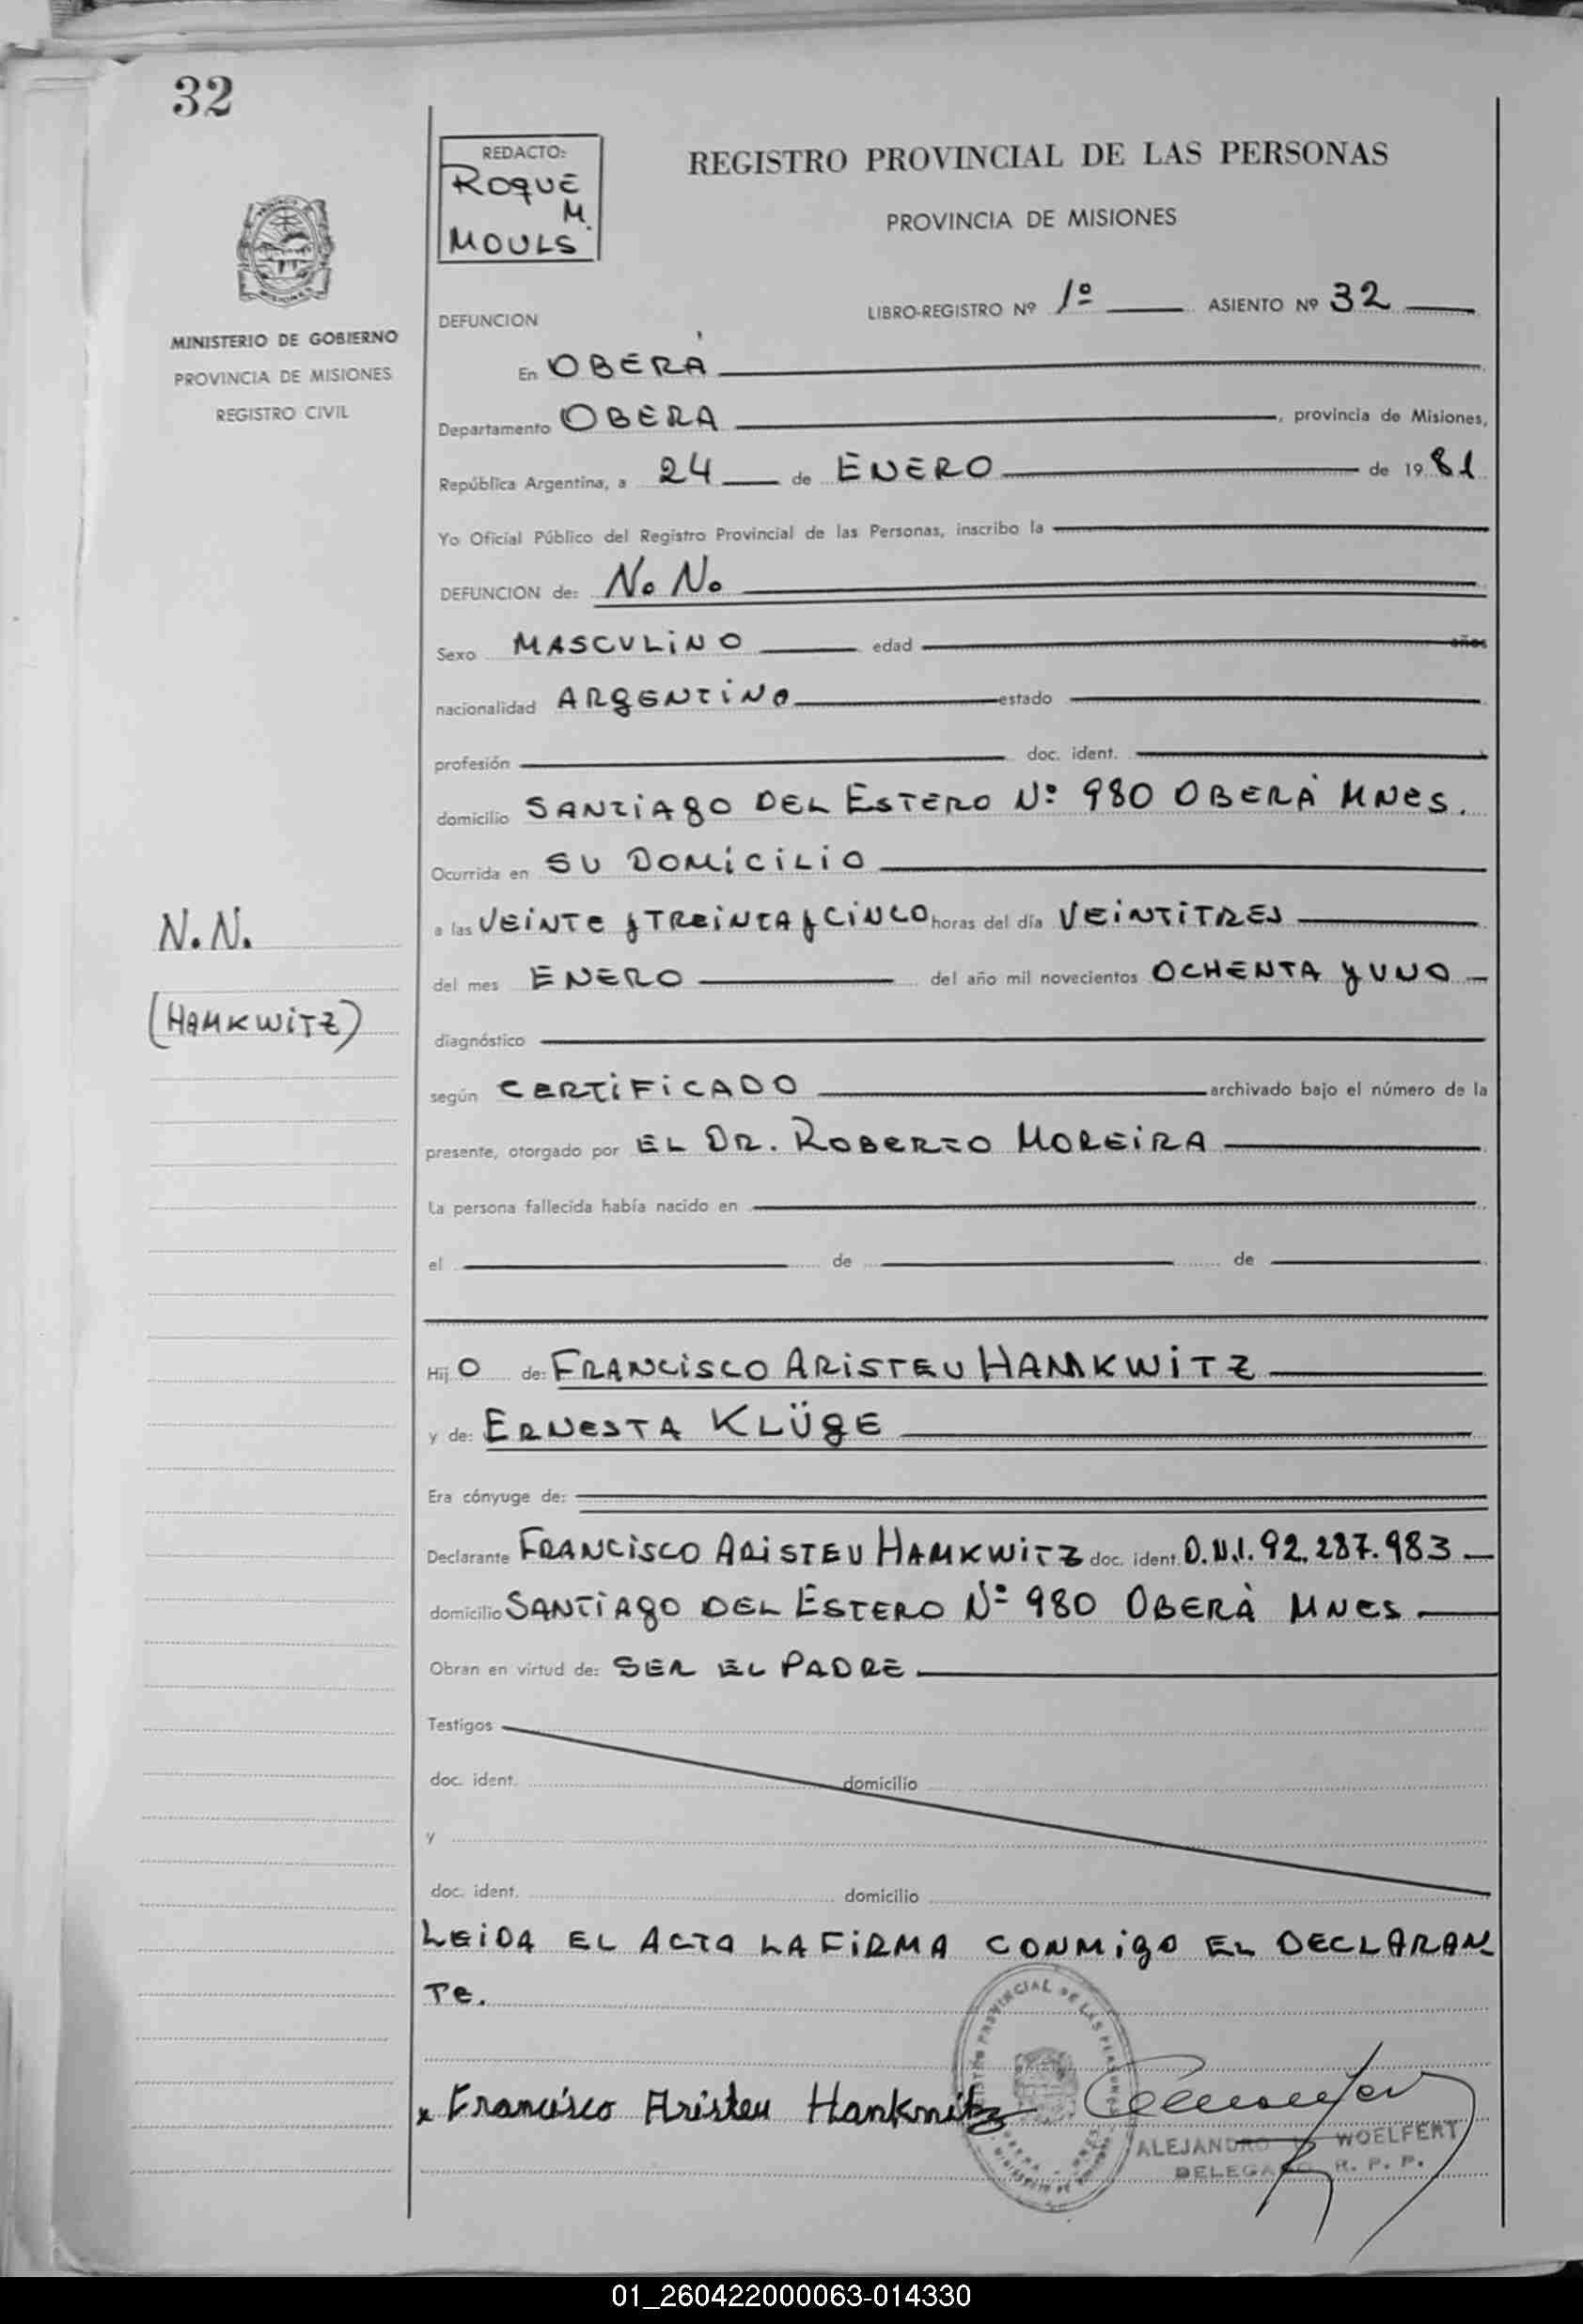 32
REDACTO:
ROQUE
M.
MOULS
REGISTRO PROVINCIAL DE LAS PERSONAS
PROVINCIA DE MISIONES
MINISTERIO DE GOBIERNO
PROVINCIA DE MISIONES
REGISTRO CIVIL
LIBRO-REGISTRO Nº 1º ASIENTO Nº 32
DEFUNCION
En OBERÁ
Departamento OBERA, provincia de Misiones,
República Argentina, a 24 de ENERO de 1981
Yo Oficial Público del Registro Provincial de las Personas, inscribo la
DEFUNCION de: N. N.
Sexo MASCULINO edad años
nacionalidad ARGENTINO estado
profesión doc. ident.
domicilio SANTIAGO DEL ESTERO Nº 980 OBERÁ MNES.
Ocurrida en SU DOMICILIO
a las VEINTE y TREINTA y CINCO horas del día VEINTITRES
del mes ENERO del año mil novecientos OCHENTA y UNO
N.N.
(HAMKWITZ)
diagnóstico
según CERTIFICADO archivado bajo el número de la
presente, otorgado por EL DR. ROBERTO MOREIRA
La persona fallecida había nacido en
el de de
Hij O de: FRANCISCO ARISTEU HAMKWITZ
y de: ERNESTA KLÜGE
Era cónyuge de:
Declarante FRANCISCO ARISTEU HAMKWITZ doc. ident. D.N.I. 92.287.983
domicilio SANTIAGO DEL ESTERO Nº 980 OBERÁ MNES
Obran en virtud de: SER EL PADRE
Testigos
doc. ident. domicilio
y
doc. ident. domicilio
LEIDA EL ACTA LA FIRMA CONMIGO EL DECLARAN
TE.
x Francisco Aristeu Hankwitz
ALEJANDRO WOELFERT
DELEGADO R. P. P.
01_260422000063-014330